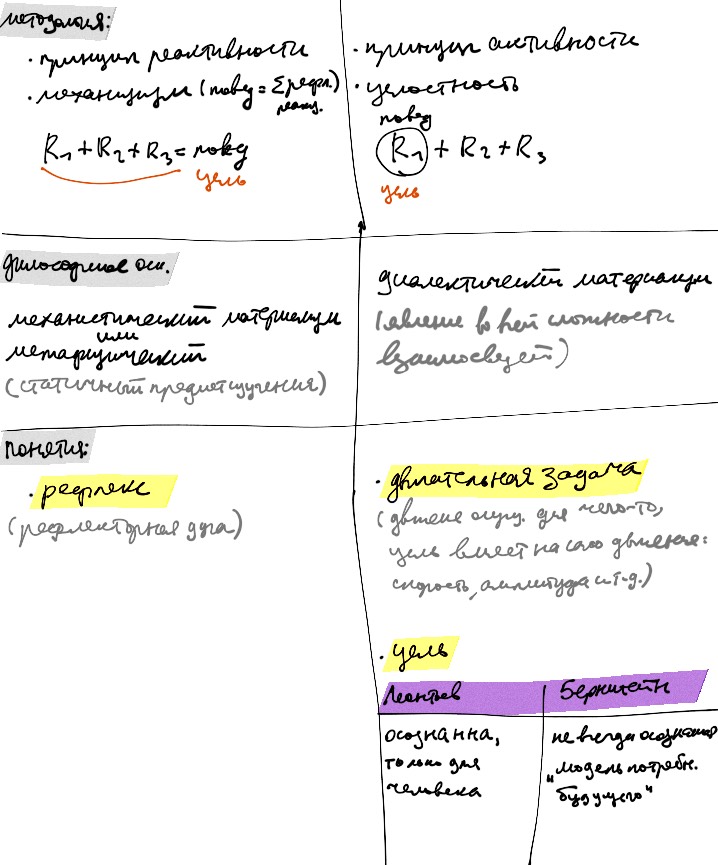 методология:
· принцип реактивности
· механицизм (повед = Σ рефл.)
реакц.
R₁ + R₂ + R₃ = повед
цель
· принцип активности
· целостность
повед
R₁ + R₂ + R₃
цель
философские осн.
механистический материализм
или
метафизический
(статичный предмет изучения)
диалектический материализм
(явление во всей сложности
взаимосвязей)
понятия:
· рефлекс
(рефлекторная дуга)
· двигательная задача
(движение осущ. для чего-то,
цель влияет на само движение:
скорость, амплитуда и т.д.)
· цель
Леонтьев
осознанна,
только для
человека
Бернштейн
не всегда осознанна
„модель потребн.
будущего"